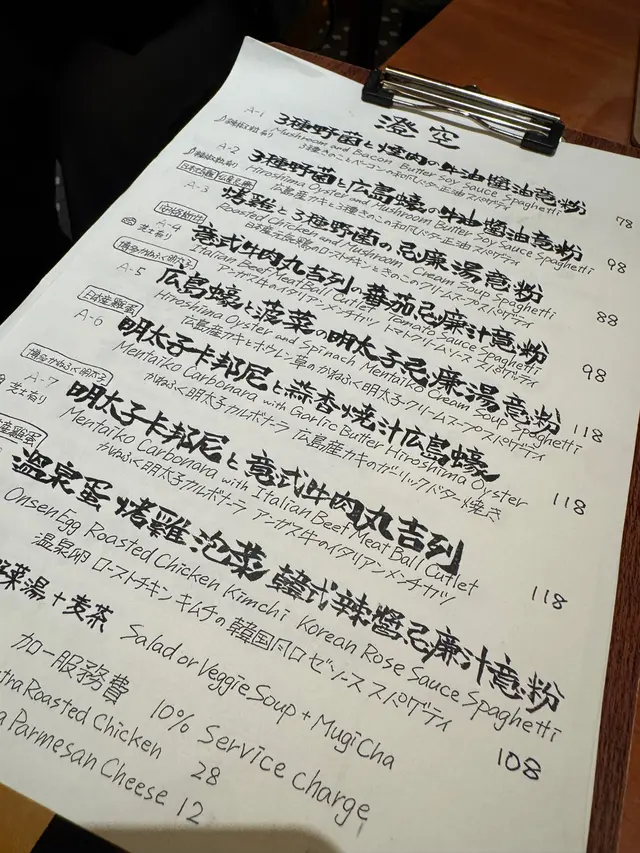 澄空
A-1
3種野菌と燒肉の牛油醬油意粉 78
Mushroom and Bacon Butter Soy Sauce Spaghetti
3種きのことベーコンの和風バター正油スパゲティ
A-2
3種野菌と広島蠔の牛油醬油意粉 98
Hiroshima Oyster and Mushroom Butter Soy Sauce Spaghetti
広島産カキと3種きのこの和風バター正油スパゲティ
A-3
烤雞と3種野菌の忌廉湯意粉 88
Roasted Chicken and Mushroom Cream Soup Spaghetti
A-4
芝士有り
意式牛肉丸吉列の蕃茄忌廉汁意粉 98
Italian Beef MeatBall Cutlet Tomato Sauce Spaghetti
アンガス牛のイタリアンメンチカツ トマトクリームソーススパゲティ
A-5
広島蠔と菠菜の明太子忌廉湯意粉 118
Hiroshima Oyster and Spinach Mentaiko Cream Soup Spaghetti
広島産カキとホウレン草のかねふく明太子クリームスープスパゲティ
A-6
明太子卡邦尼と蒜香燒汁広島蠔 118
Mentaiko Carbonara with Garlic Butter Hiroshima Oyster
かねふく明太子カルボナーラ 広島産カキのガーリックバター焼き
A-7
芝士有り
明太子卡邦尼と意式牛肉丸吉列 118
Mentaiko Carbonara with Italian Beef MeatBall Cutlet
かねふく明太子カルボナーラ アンガス牛のイタリアンメンチカツ
温泉蛋 烤雞 泡菜 韓式辣醬忌廉汁意粉 108
Onsen Egg Roasted Chicken Kimchi Korean Rose Sauce Spaghetti
温泉卵 ローストチキン キムチの韓国風ロゼソーススパゲティ
菜湯+麦茶 Salad or Veggie Soup + MugiCha
加一服務費 10% Service Charge
Roasted Chicken 28
Parmesan Cheese 12